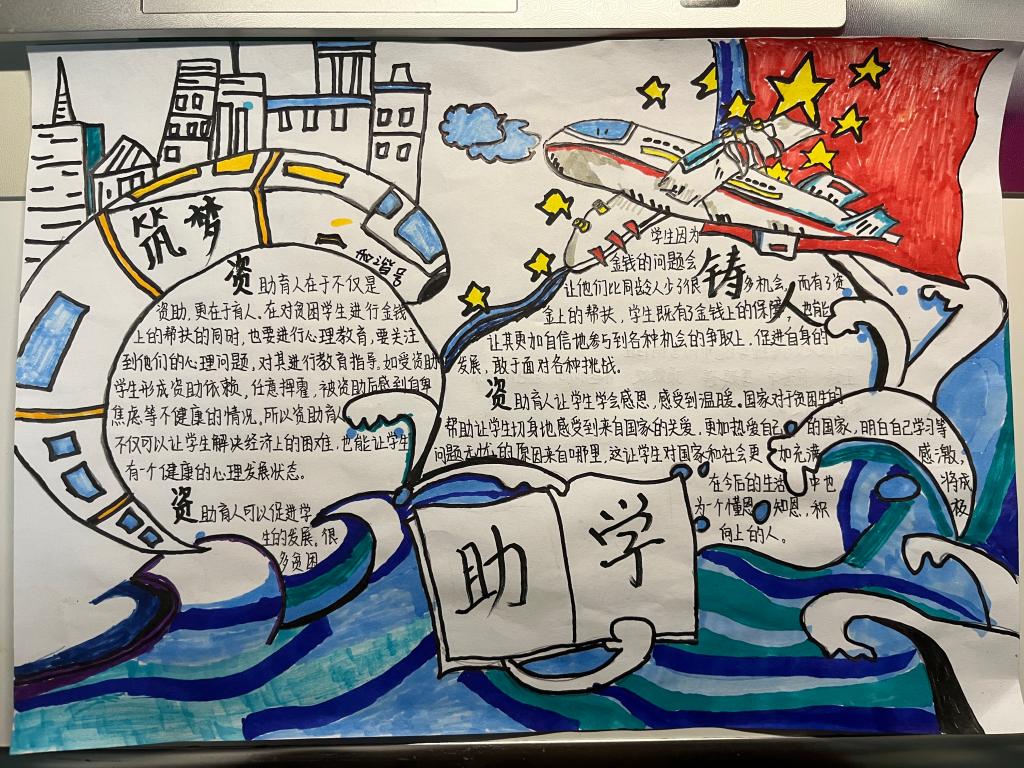 筑梦
和谐号
资助育人在于不仅是
资助,更在于育人。在对贫困学生进行金钱
上的帮扶的同时,也要进行心理教育,要关注
到他们的心理问题,对其进行教育指导。如受资助
学生形成资助依赖,任意挥霍,被资助后感到自卑
焦虑等不健康的情况。所以资助育人
不仅可以让学生解决经济上的困难,也能让学生
有个健康的心理发展状态。
资助育人可以促进学
生的发展。很
多贫困
学生因为
金钱的问题会
让他们比同龄人少了很多机会,而有了资
铸人
金上的帮扶,学生既有了金钱上的保障,也能
让其更加自信地参与到各种机会的争取上,促进自身的
发展,敢于面对各种挑战。
资助育人让学生学会感恩,感受到温暖。国家对于贫困生的
帮助让学生切身地感受到来自国家的关爱,更加热爱自己的国家,明白自己学习等
问题无忧的原因来自哪里,这让学生对国家和社会更加充满感激,
在今后的生活中也将成
为一个懂恩知恩,积极
向上的人。
助学